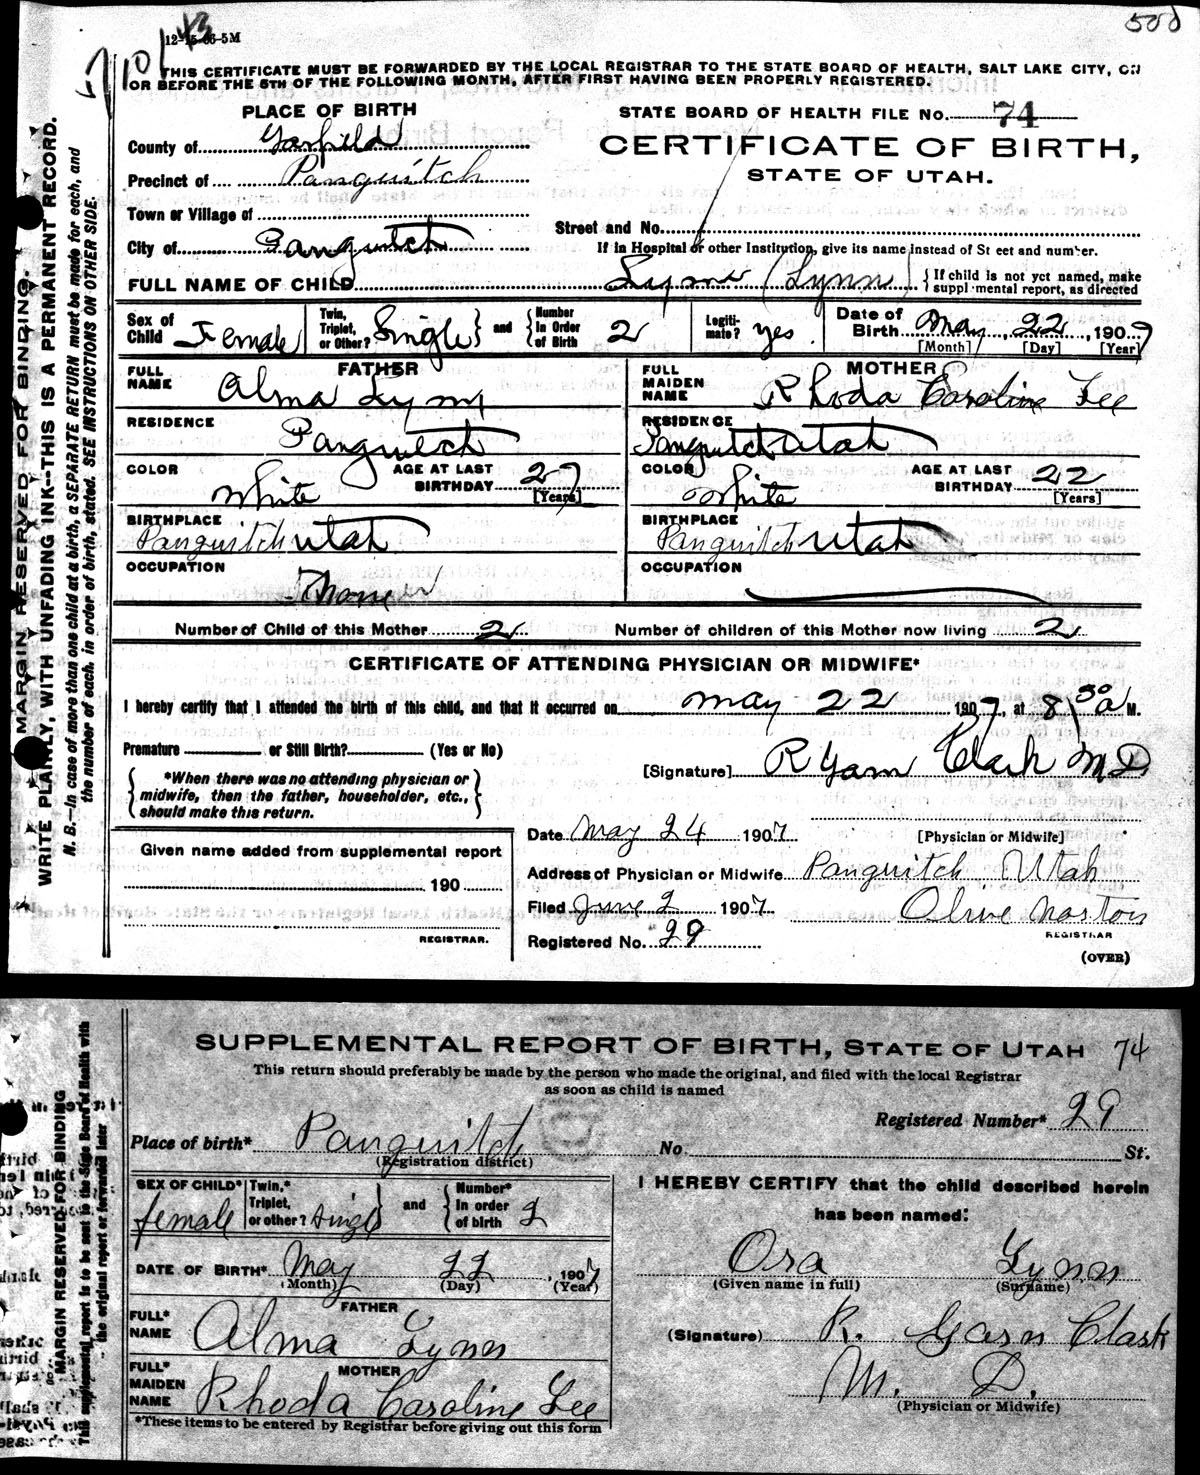 500
12-15-06-5M
THIS CERTIFICATE MUST BE FORWARDED BY THE LOCAL REGISTRAR TO THE STATE BOARD OF HEALTH, SALT LAKE CITY, ON
OR BEFORE THE 5TH OF THE FOLLOWING MONTH, AFTER FIRST HAVING BEEN PROPERLY REGISTERED.
PLACE OF BIRTH
County of Garfield
Precinct of Panguitch
Town or Village of
City of Panguitch
STATE BOARD OF HEALTH FILE NO. 74
CERTIFICATE OF BIRTH,
STATE OF UTAH.
Street and No.
If in Hospital or other Institution, give its name instead of Street and number.
FULL NAME OF CHILD Lynn (Lynn) {If child is not yet named, make supplemental report, as directed
Sex of Child Female Twin, Triplet, or Other? Single and Number In Order of Birth 2 Legitimate? yes Date of Birth May 22, 1907
[Month] [Day] [Year]
FATHER
FULL NAME Alma Lynn
RESIDENCE Panguitch
COLOR White AGE AT LAST BIRTHDAY 27 [Years]
BIRTHPLACE Panguitch Utah
OCCUPATION
MOTHER
FULL MAIDEN NAME Rhoda Caroline Lee
RESIDENCE Panguitch Utah
COLOR White AGE AT LAST BIRTHDAY 22 [Years]
BIRTHPLACE Panguitch Utah
OCCUPATION
Number of Child of this Mother 2 Number of children of this Mother now living 2
CERTIFICATE OF ATTENDING PHYSICIAN OR MIDWIFE*
I hereby certify that I attended the birth of this child, and that it occurred on May 22 1907, at 8 30 a M.
Premature or Still Birth? (Yes or No)
{*When there was no attending physician or midwife, then the father, householder, etc., should make this return.}
[Signature] R Garn Clark MD
[Physician or Midwife]
Given name added from supplemental report
190
REGISTRAR.
Date May 24 1907
Address of Physician or Midwife Panguitch Utah
Filed June 2 1907 Olive Norton
REGISTRAR
Registered No. 29
(OVER)
MARGIN RESERVED FOR BINDING.
WRITE PLAINLY, WITH UNFADING INK--THIS IS A PERMANENT RECORD.
N. B.—In case of more than one child at a birth, a SEPARATE RETURN must be made for each, and
the number of each, in order of birth, stated. SEE INSTRUCTIONS ON OTHER SIDE.
SUPPLEMENTAL REPORT OF BIRTH, STATE OF UTAH 74
This return should preferably be made by the person who made the original, and filed with the local Registrar
as soon as child is named
Registered Number* 29
Place of birth* Panguitch No. St.
(Registration district)
SEX OF CHILD* female Twin,* Triplet, or other? single and Number* In order of birth 2
DATE OF BIRTH* May 22, 1907
(Month) (Day) (Year)
FATHER
FULL* NAME Alma Lynn
MOTHER
FULL* MAIDEN NAME Rhoda Caroline Lee
*These items to be entered by Registrar before giving out this form
I HEREBY CERTIFY that the child described herein
has been named:
Ora Lynn
(Given name in full) (Surname)
(Signature) R. Garn Clark
M. D.
(Physician or Midwife)
MARGIN RESERVED FOR BINDING
This supplemental report is to be sent to the State Board of Health with
the original report or forwarded later